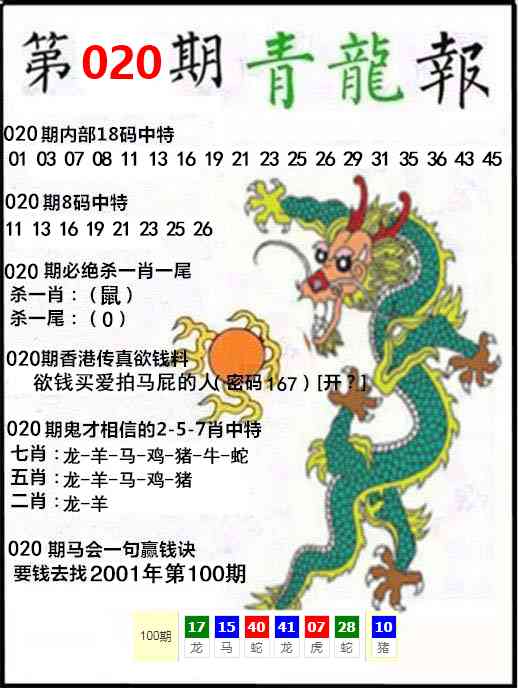 第020期青龍報
020期内部18码中特
01 03 07 08 11 13 16 19 21 23 25 26 29 31 35 36 43 45
020期8码中特
11 13 16 19 21 23 25 26
020 期必绝杀一肖一尾
杀一肖：（鼠）
杀一尾：（0）
020期香港传真欲钱料
欲钱买爱拍马屁的人(密码167）[开？]
020期鬼才相信的2-5-7肖中特
七肖：龙-羊-马-鸡-猪-牛-蛇
五肖：龙-羊-马-鸡-猪
二肖：龙-羊
020 期马会一句赢钱诀
要钱去找2001年第100期
100期 17 15 40 41 07 28 10
龙 马 蛇 龙 虎 蛇 猪